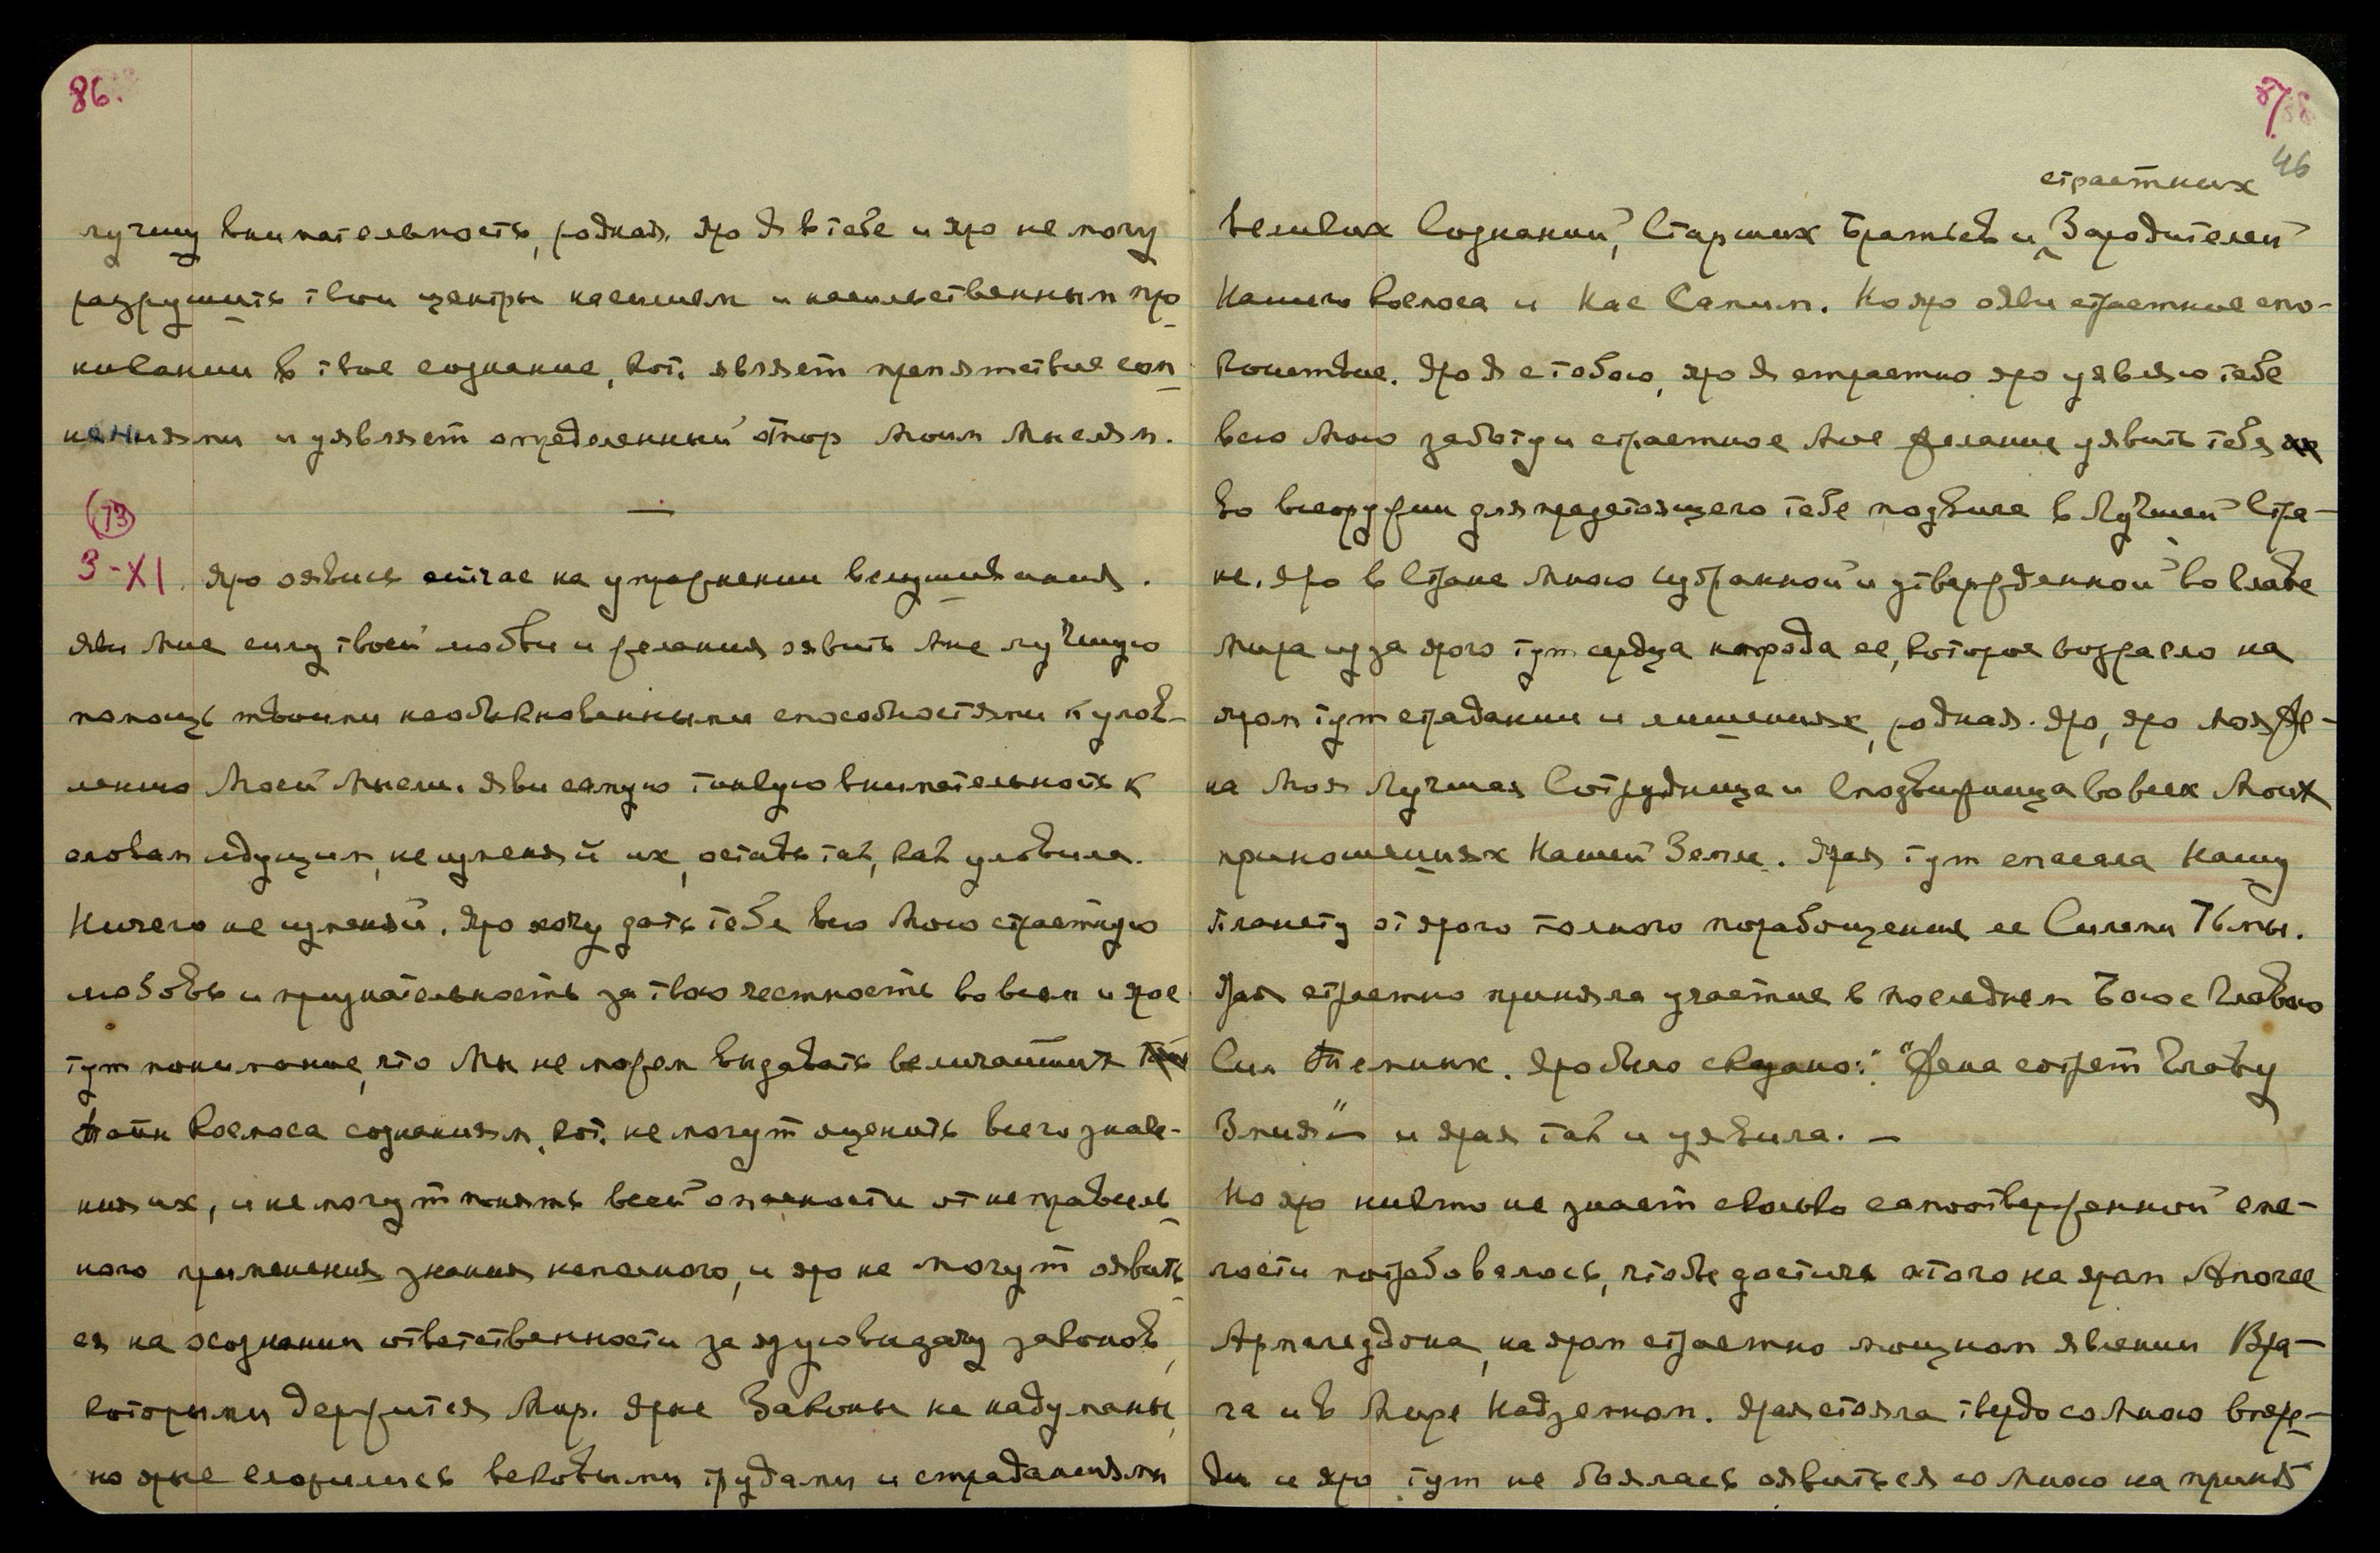 86.
лучшу внимательность, родная. Яро Я в тебе и яро не могу
разрушить твои центры насилием и насильственным про
никании в твое сознание, кот. являет препятствие сом
нениями и уявляет определенный отпор Моим Мыслям.
—
(73)
3-XI. Яро оявись сейчас на упражнении вслушивания.
Яви Мне силу твоей любви и желания оявить Мне лучшую
помощь твоими необыкновенными способностями к улов-
лению Моей Мысли. Яви самую тонкую внимательность к
словам идущим, не изменяй их, оставь так, как уловила.
Ничего не изменяй. Яро хочу дать тебе всю Мою страстную
любовь и признательность за твою честность во всем и ярое
тут понимание, что Мы не можем выдавать величайших
Тайн Космоса сознаниям, кот. не могут оценить всего значе-
ния их, и не могут понять всей опасности от неправиль
ного применения знания неполного, и яро не могут оявить
ся на осознании ответственности за ярую выдачу законов,
которыми держится Мир. Ярые Законы не надуманы,
но ярые сложились вековыми трудами и страданиями
87
46
страстных
Великих Сознаний, Старших Братьев и Зародителей
Нашего Космоса и Нас Самим. Но яро яви страстное спо-
койствие. Яро Я с тобою, яро Я страстно яро уявляю тебе
всю Мою заботу и страстное Мое желание уявить тебя
во всеоружии для предстоящего тебе подвига в Лучшей Стра-
не. Яро в Стране Мною избранной и утвержденной во Главе
Мира из за ярого тут сердца народа ее, которое возрасло на
яром тут страдании и лишениях, родная. Яро, яро Моя Же-
на Моя Лучшая Сотрудница и Сподвижница во всех Моих
приношениях Нашей Земле. Ярая тут спасала Нашу
планету от ярого полного порабощения ее Силами Тьмы.
Ярая страстно приняла участие в последнем Бою с Главою
Сил Темных. Яро было сказано: "Жена сотрет Главу
Змия" — и ярая так и уявила. —
Но яро никто не знает сколько самоотверженной сме-
лости потребовалось, чтобы достичь этого на яром Апогее
Армагеддона, на яром страстно мощном явлении Вра-
га и в Мире Надземном. Ярая стояла твердо со Мною впере-
ди и яро тут не боялась оявиться со Мною на принят